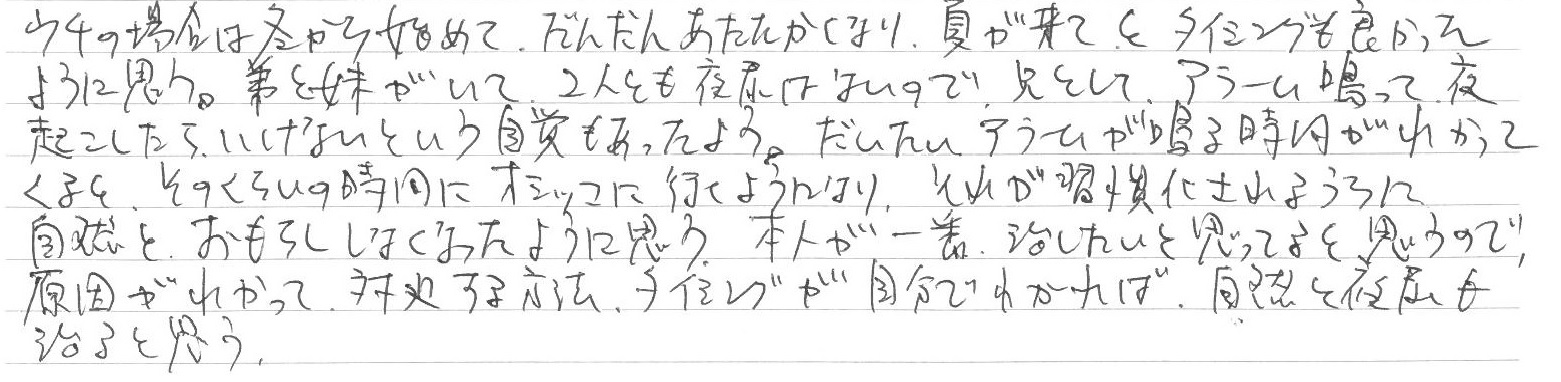 ウチの場合は冬から始めて、だんだんあたたかくなり、夏が来て、とタイミングも良かった
ように思う。弟と妹がいて、2人とも夜尿はないので、兄として、アラーム鳴って、夜
起こしたら、いけないという自覚もあったよう。だいたいアラームが鳴る時間がわかって
くると、そのくらいの時間にオシッコに行くようになり、それが習慣化されるうちに
自然と、おもらししなくなったように思う。本人が一番、治したいと思ってると思うので、
原因がわかって、対処する方法、タイミングが自分でわかれば、自然と夜尿も
治ると思う。